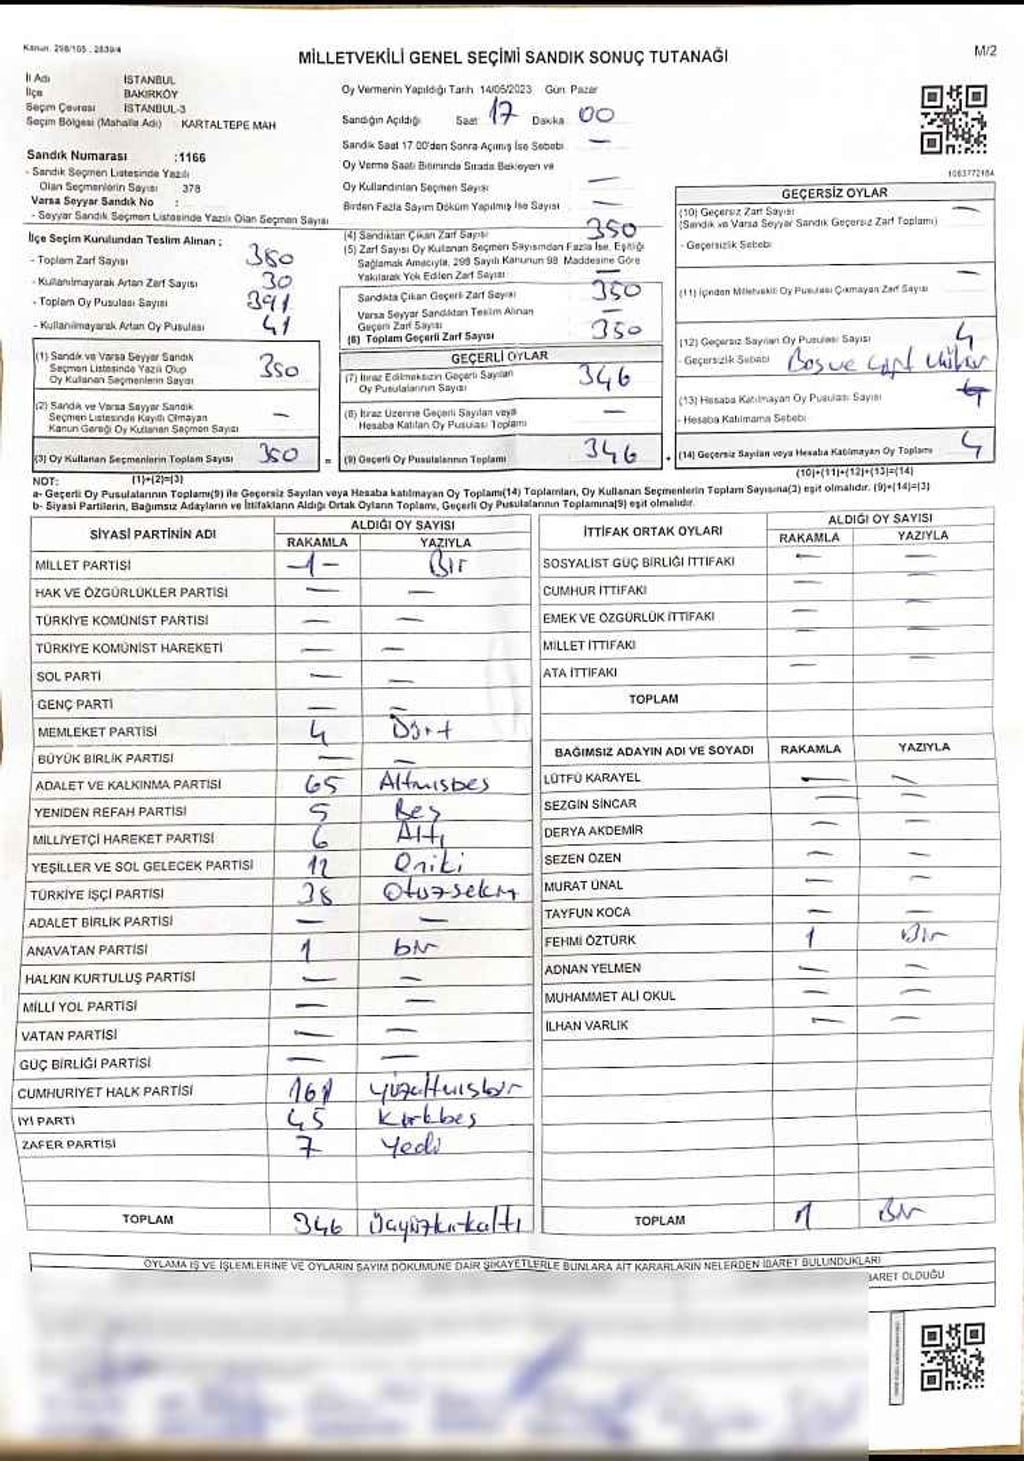 Kanun. 298/105, 2839/4
MİLLETVEKİLİ GENEL SEÇİMİ SANDIK SONUÇ TUTANAĞI
M/2
İl Adı İSTANBUL
İlçe BAKIRKÖY
Seçim Çevresi İSTANBUL-3
Seçim Bölgesi (Mahalle Adı) KARTALTEPE MAH
Oy Vermenin Yapıldığı Tarih 14/05/2023 Gün Pazar
Sandığın Açıldığı Saat 17 Dakika 00
Sandık Saat 17.00'den Sonra Açılmış İse Sebebi —
Oy Verme Saati Bitiminde Sırada Bekleyen ve
Oy Kullandırılan Seçmen Sayısı —
Birden Fazla Sayım Döküm Yapılmış İse Sayısı —
Sandık Numarası :1166
- Sandık Seçmen Listesinde Yazılı
Olan Seçmenlerin Sayısı 378
Varsa Seyyar Sandık No :
- Seyyar Sandık Seçmen Listesinde Yazılı Olan Seçmen Sayısı
İlçe Seçim Kurulundan Teslim Alınan ;
- Toplam Zarf Sayısı 380
- Kullanılmayarak Artan Zarf Sayısı 30
- Toplam Oy Pusulası Sayısı 391
- Kullanılmayarak Artan Oy Pusulası 41
(1) Sandık ve Varsa Seyyar Sandık
Seçmen Listesinde Yazılı Olup
Oy Kullanan Seçmenlerin Sayısı 350
(2) Sandık ve Varsa Seyyar Sandık
Seçmen Listesinde Kayıtlı Olmayan
Kanun Gereği Oy Kullanan Seçmen Sayısı —
(3) Oy Kullanan Seçmenlerin Toplam Sayısı 350
(1)+(2)=(3)
(4) Sandıktan Çıkan Zarf Sayısı 350
(5) Zarf Sayısı Oy Kullanan Seçmen Sayısından Fazla İse, Eşitliği
Sağlamak Amacıyla, 298 Sayılı Kanunun 98 Maddesine Göre
Yakılarak Yok Edilen Zarf Sayısı —
Sandıkta Çıkan Geçerli Zarf Sayısı 350
Varsa Seyyar Sandıktan Teslim Alınan
Geçerli Zarf Sayısı —
(6) Toplam Geçerli Zarf Sayısı 350
GEÇERLİ OYLAR
(7) İtiraz Edilmeksizin Geçerli Sayılan
Oy Pusulalarının Sayısı 346
(8) İtiraz Üzerine Geçerli Sayılan veya
Hesaba Katılan Oy Pusulası Toplamı —
= (9) Geçerli Oy Pusulalarının Toplamı 346
1063772164
GEÇERSİZ OYLAR
(10) Geçersiz Zarf Sayısı —
(Sandık ve Varsa Seyyar Sandık Geçersiz Zarf Toplamı)
- Geçersizlik Sebebi
(11) İçinden Milletvekili Oy Pusulası Çıkmayan Zarf Sayısı —
(12) Geçersiz Sayılan Oy Pusulası Sayısı 4
- Geçersizlik Sebebi Boş ve çift mühür
(13) Hesaba Katılmayan Oy Pusulası Sayısı
- Hesaba Katılmama Sebebi
+ (14) Geçersiz Sayılan veya Hesaba Katılmayan Oy Toplamı 4
(10)+(11)+(12)+(13)=(14)
NOT:
a- Geçerli Oy Pusulalarının Toplamı(9) ile Geçersiz Sayılan veya Hesaba katılmayan Oy Toplamı(14) Toplamları, Oy Kullanan Seçmenlerin Toplam Sayısına(3) eşit olmalıdır. (9)+(14)=(3)
b- Siyasi Partilerin, Bağımsız Adayların ve İttifakların Aldığı Ortak Oyların Toplamı, Geçerli Oy Pusulalarının Toplamına(9) eşit olmalıdır.
SİYASİ PARTİNİN ADI ALDIĞI OY SAYISI
RAKAMLA YAZIYLA
MİLLET PARTİSİ -1- Bir
HAK VE ÖZGÜRLÜKLER PARTİSİ — —
TÜRKİYE KOMÜNİST PARTİSİ — —
TÜRKİYE KOMÜNİST HAREKETİ — —
SOL PARTİ — —
GENÇ PARTİ — —
MEMLEKET PARTİSİ 4 Dört
BÜYÜK BİRLİK PARTİSİ — —
ADALET VE KALKINMA PARTİSİ 65 Altmışbeş
YENİDEN REFAH PARTİSİ 5 Beş
MİLLİYETÇİ HAREKET PARTİSİ 6 Altı
YEŞİLLER VE SOL GELECEK PARTİSİ 12 Oniki
TÜRKİYE İŞÇİ PARTİSİ 38 Otuzsekiz
ADALET BİRLİK PARTİSİ — —
ANAVATAN PARTİSİ 1 bir
HALKIN KURTULUŞ PARTİSİ — —
MİLLİ YOL PARTİSİ — —
VATAN PARTİSİ — —
GÜÇ BİRLİĞİ PARTİSİ — —
CUMHURİYET HALK PARTİSİ 161 Yüzaltmışbir
İYİ PARTİ 45 Kırkbeş
ZAFER PARTİSİ 7 Yedi
TOPLAM 346 Üçyüzkırkaltı
İTTİFAK ORTAK OYLARI ALDIĞI OY SAYISI
RAKAMLA YAZIYLA
SOSYALİST GÜÇ BİRLİĞİ İTTİFAKI — —
CUMHUR İTTİFAKI — —
EMEK VE ÖZGÜRLÜK İTTİFAKI — —
MİLLET İTTİFAKI — —
ATA İTTİFAKI — —
TOPLAM
BAĞIMSIZ ADAYIN ADI VE SOYADI RAKAMLA YAZIYLA
LÜTFÜ KARAYEL — —
SEZGİN SİNCAR — —
DERYA AKDEMİR — —
SEZEN ÖZEN — —
MURAT ÜNAL — —
TAYFUN KOCA — —
FEHMİ ÖZTÜRK 1 Bir
ADNAN YELMEN — —
MUHAMMET ALİ OKUL — —
İLHAN VARLIK — —
TOPLAM 1 Bir
OYLAMA İŞ VE İŞLEMLERİNE VE OYLARIN SAYIM DÖKÜMÜNE DAİR ŞİKAYETLERLE BUNLARA AİT KARARLARIN NELERDEN İBARET BULUNDUKLARI
BARET OLDUĞU